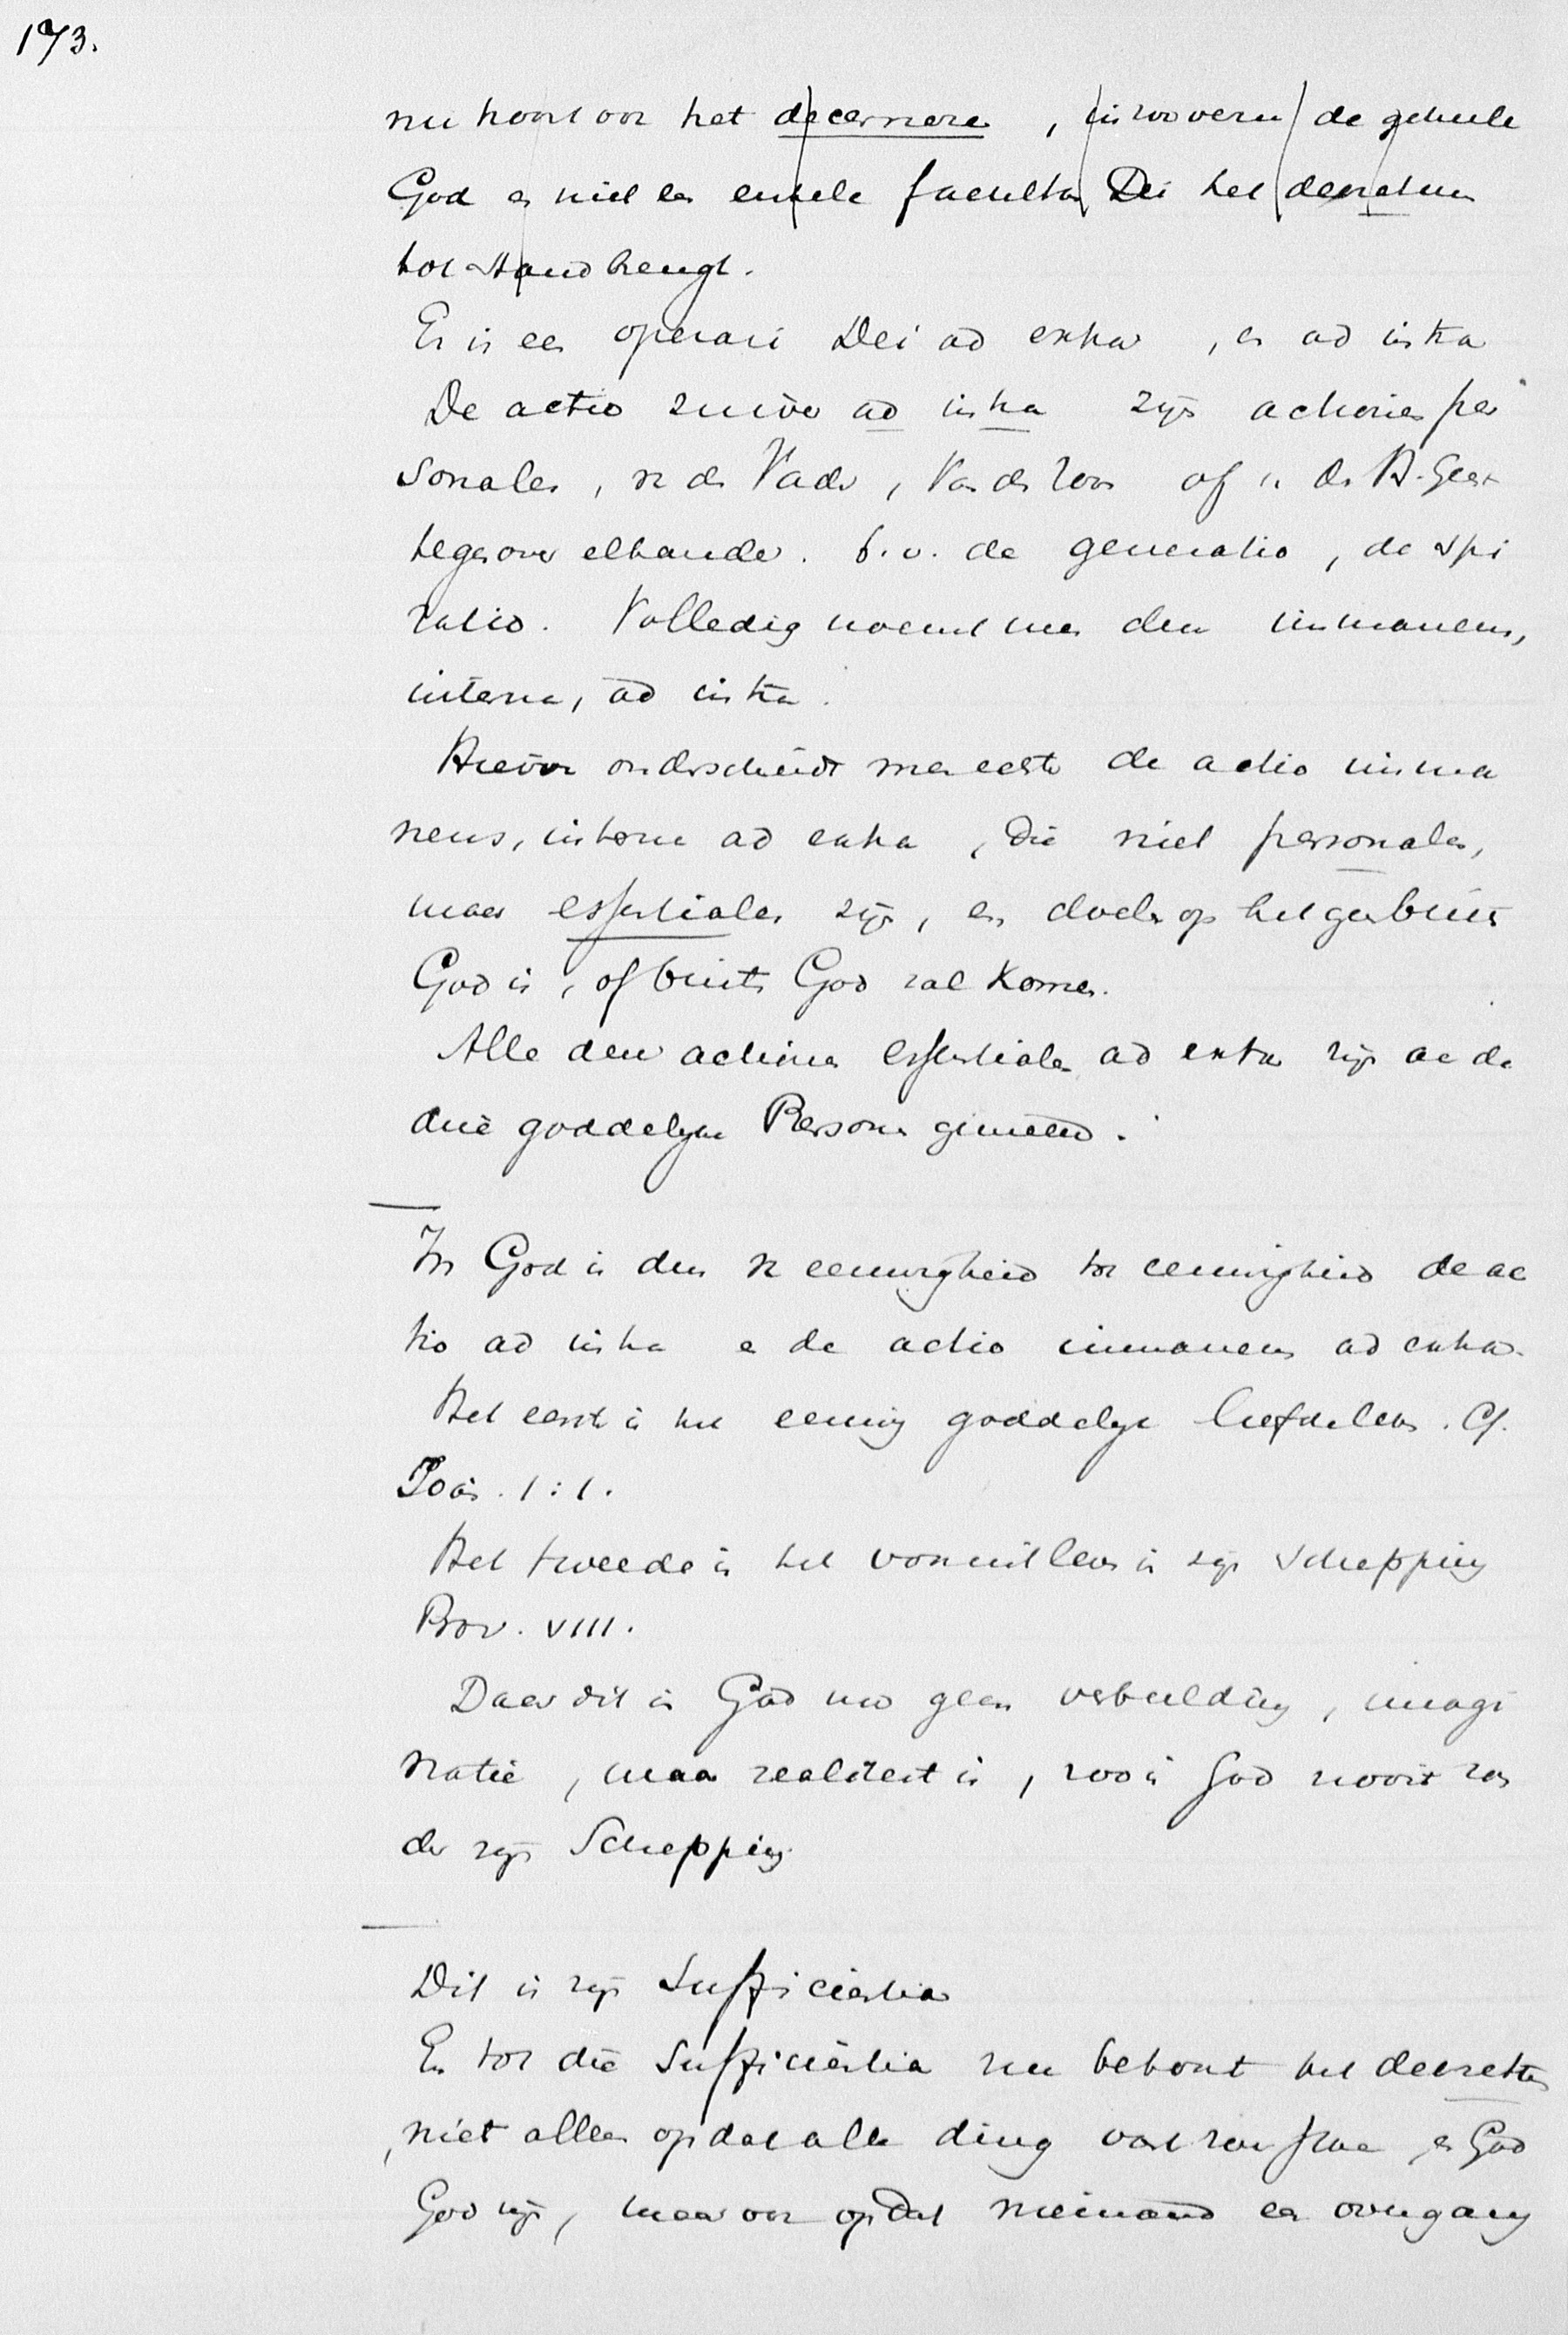 173.
nu hoort oor het decernere, in zooverre de geheele
God en niet een enkele facultas Dei het decretum
tot stand brengt.
Er is een operari Dei ad extra, en ad intra
De actio zuiver ad intra zijn actiones per
sonales, v. d. Vader, van den Zoon of v. d. H. Geest
tegenover elkander. b.v. de generatio, de spi
ratio. Volledig noemt men deze immanens,
interna, ad intra.
Hiervan onderscheidt men echter de actio imma
nens, interna ad extra, die niet personales,
maar essentiales zijn, en doelen op hetgeen buiten
God is, of buiten God zal komen.
Alle deze actiones essentiales ad extra zijn aan de
drie goddelijke Personen gemeen.
In God is dus v. eeuwigheid tot eeuwigheid de ac
tio ad intra en de actio immanens ad extra.
Het eerste is het eeuwig goddelijke liefdeleven. Cf.
Joan. 1:1.
Het tweede is het vooruitleven in zijn schepping
Prov. VIII.
Daar dit in God nu geen verbeelding, imagi
natie, maar realiteit is, zoo is God nooit zon
der zijn Schepping.
Dit is zijn Sufficientia
En tot die Sufficientia nu behoort het decretum,
niet alleen opdat alle ding vast zou staan, en God
God zij, maar ook opdat niemand een overgang